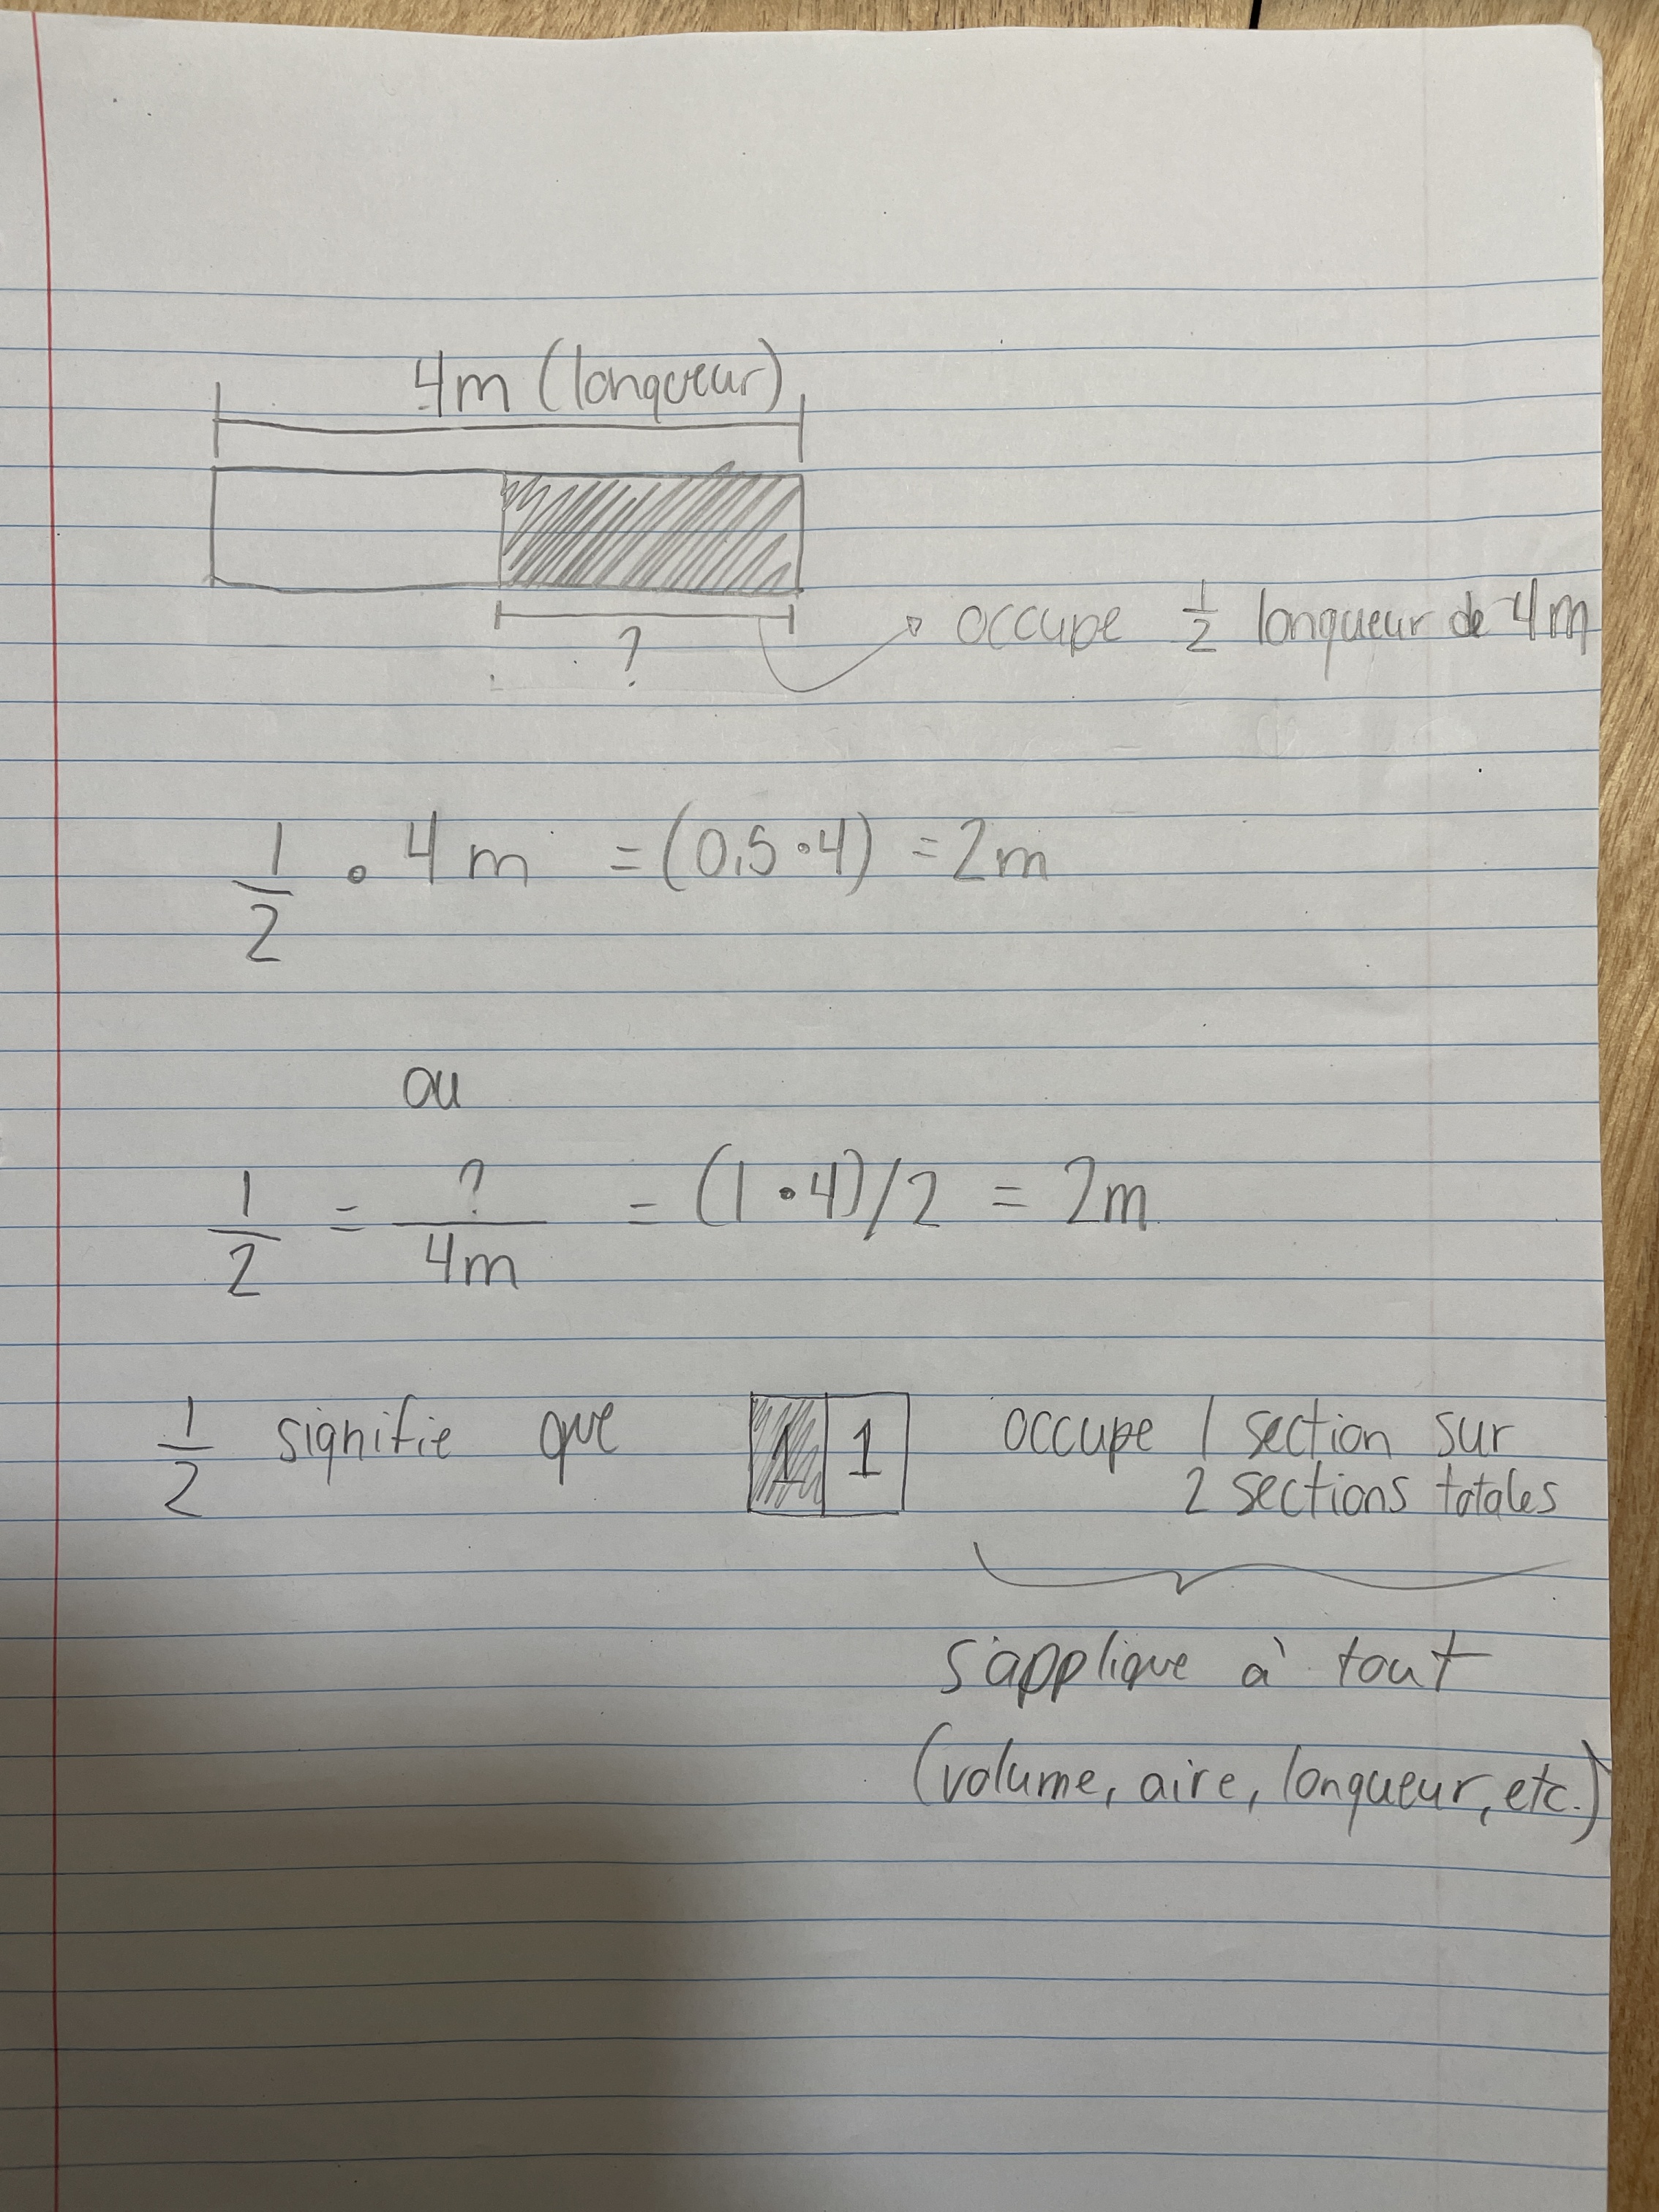 4m (longueur)
?
occupe 1/2 longueur de 4m
1/2 • 4m = (0,5•4) = 2m
ou
1/2 = ?/4m = (1•4)/2 = 2m
1/2 signifie que 1 1 occupe 1 section sur
2 sections totales
s'applique à tout
(volume, aire, longueur, etc.)